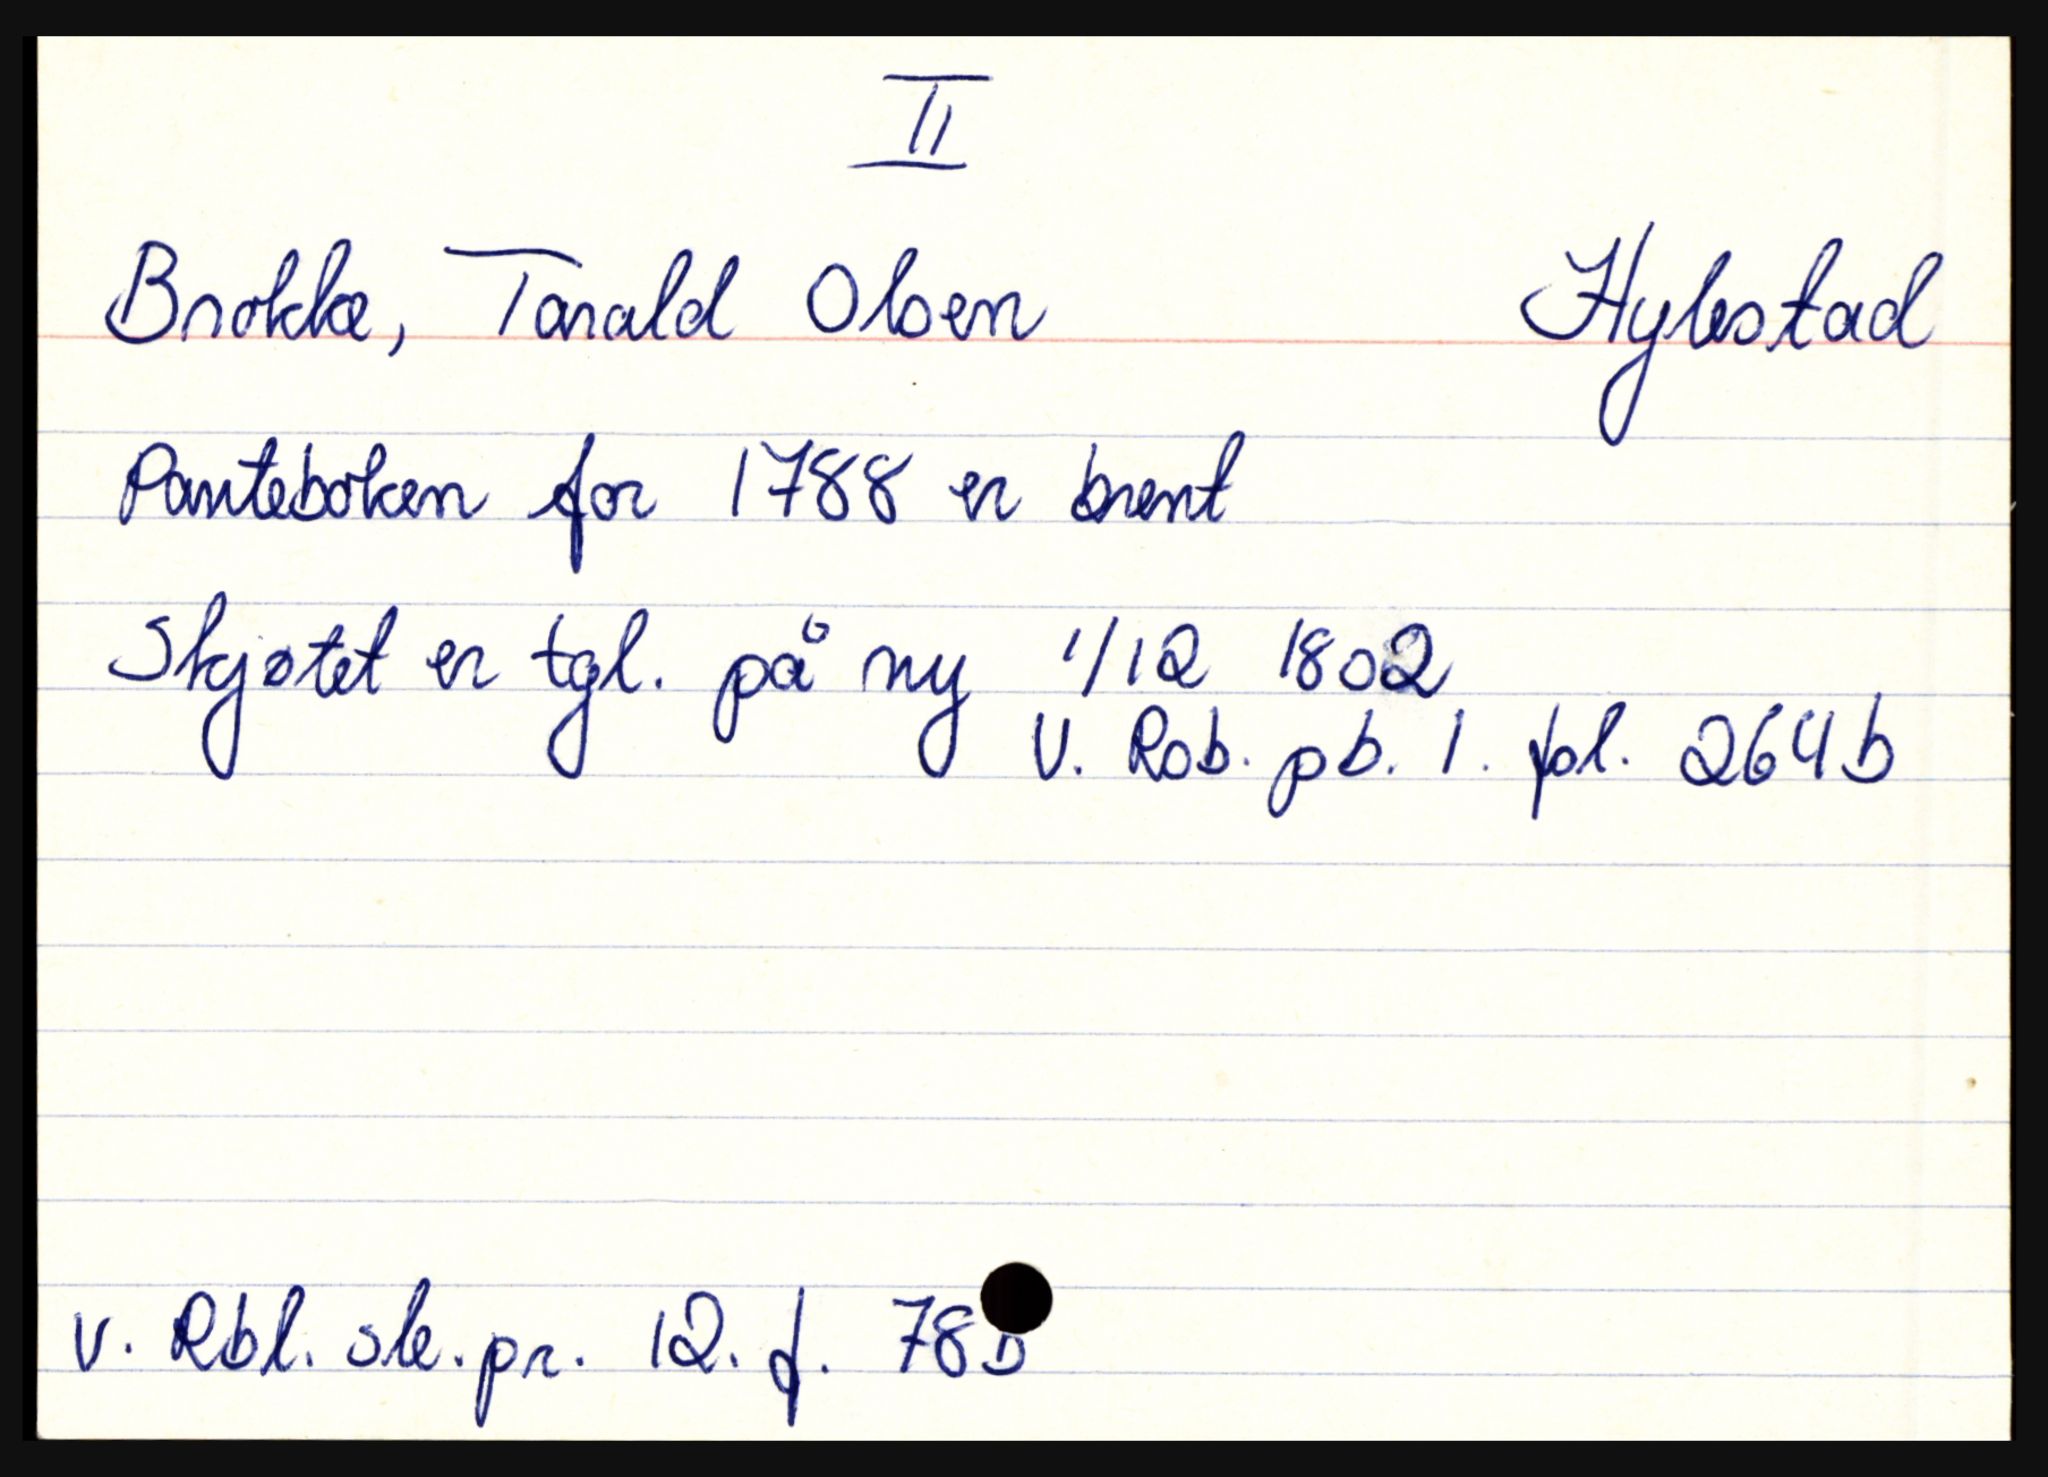 II
Brokke, Tarald Olsen Hylestad
Panteboken for 1788 er brent
Skjøtet er tgl. på ny 1/12 1802
V. Rob. pb. 1. fol. 264b
V. Rbl. sk. pr. 12. f. 78b